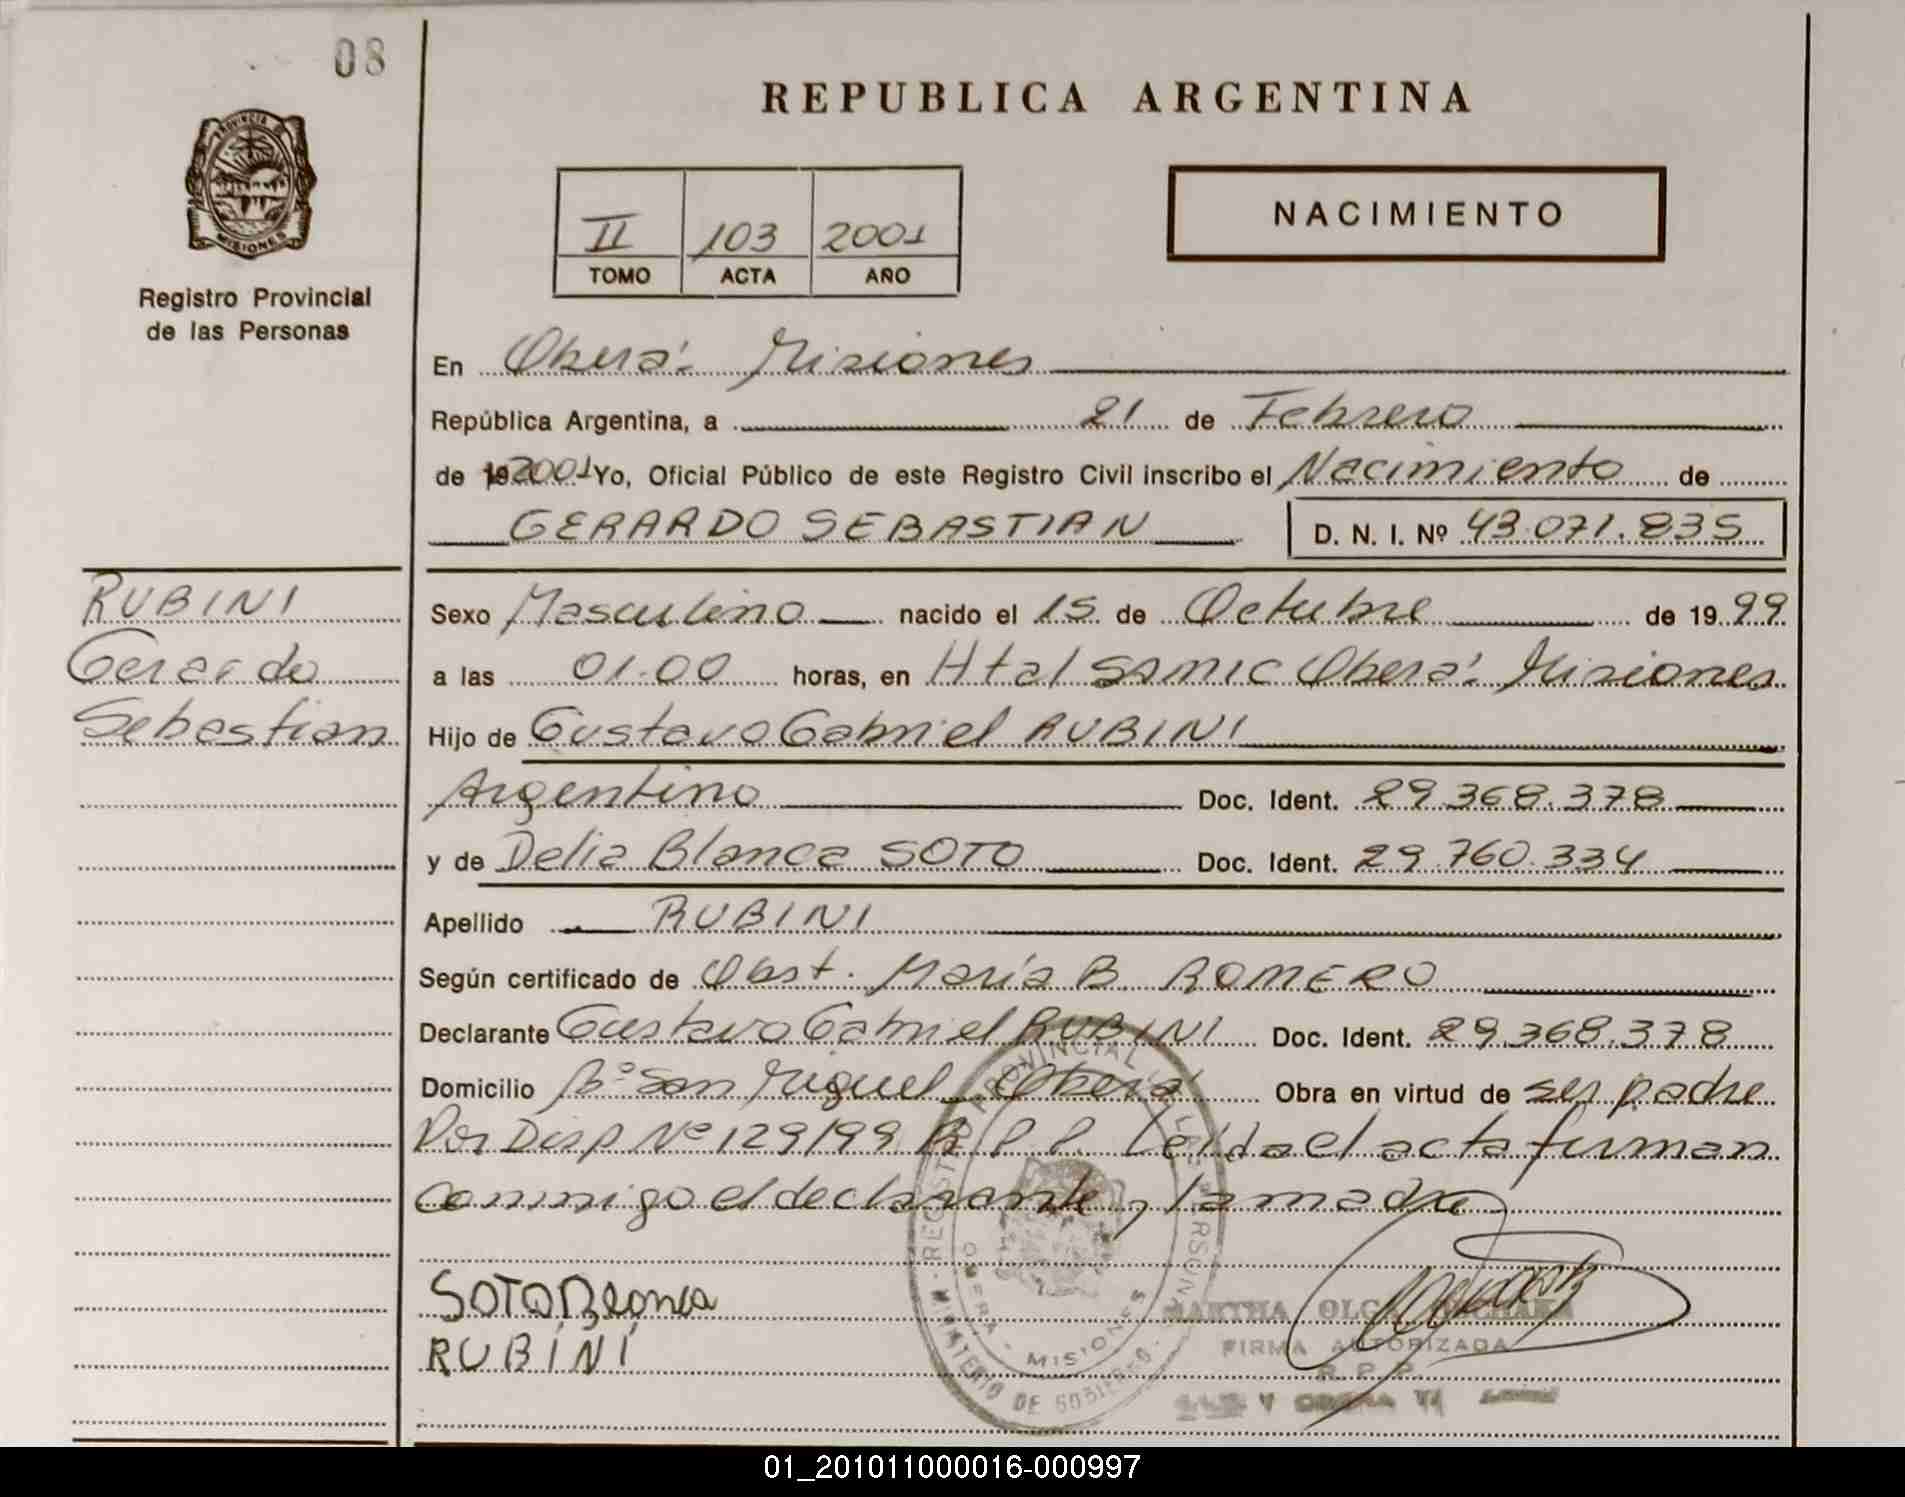 08
PROVINCIA DE
MISIONES
Registro Provincial
de las Personas
REPUBLICA ARGENTINA
II 103 2001
TOMO ACTA AÑO
NACIMIENTO
En Oberá: Misiones
República Argentina, a 21 de Febrero
de 19 2001 Yo, Oficial Público de este Registro Civil inscribo el Nacimiento de
GERARDO SEBASTIAN D. N. I. Nº 43.071.835
RUBINI
Gerardo
Sebastian
Sexo Masculino nacido el 15 de Octubre de 1999
a las 01.00 horas, en Htal SAMIC Oberá: Misiones
Hijo de Gustavo Gabriel RUBINI
Argentino Doc. Ident. 29.368.378
y de Delia Blanca SOTO Doc. Ident. 29.760.334
Apellido RUBINI
Según certificado de Obst. María B. ROMERO
Declarante Gustavo Gabriel RUBINI Doc. Ident. 29.368.378
Domicilio Bº San Miguel Oberá Obra en virtud de ser padre
Por Disp Nº 129/99 R.P.P. Leída el acta firman
conmigo el declarante y la madre
SOTO Blanca
RUBINI
REGISTRO PROVINCIAL DE LAS PERSONAS
MINISTERIO DE GOBIERNO
OBERA - MISIONES
MARTHA OLGA
FIRMA AUTORIZADA
R. P. P.
01_201011000016-000997